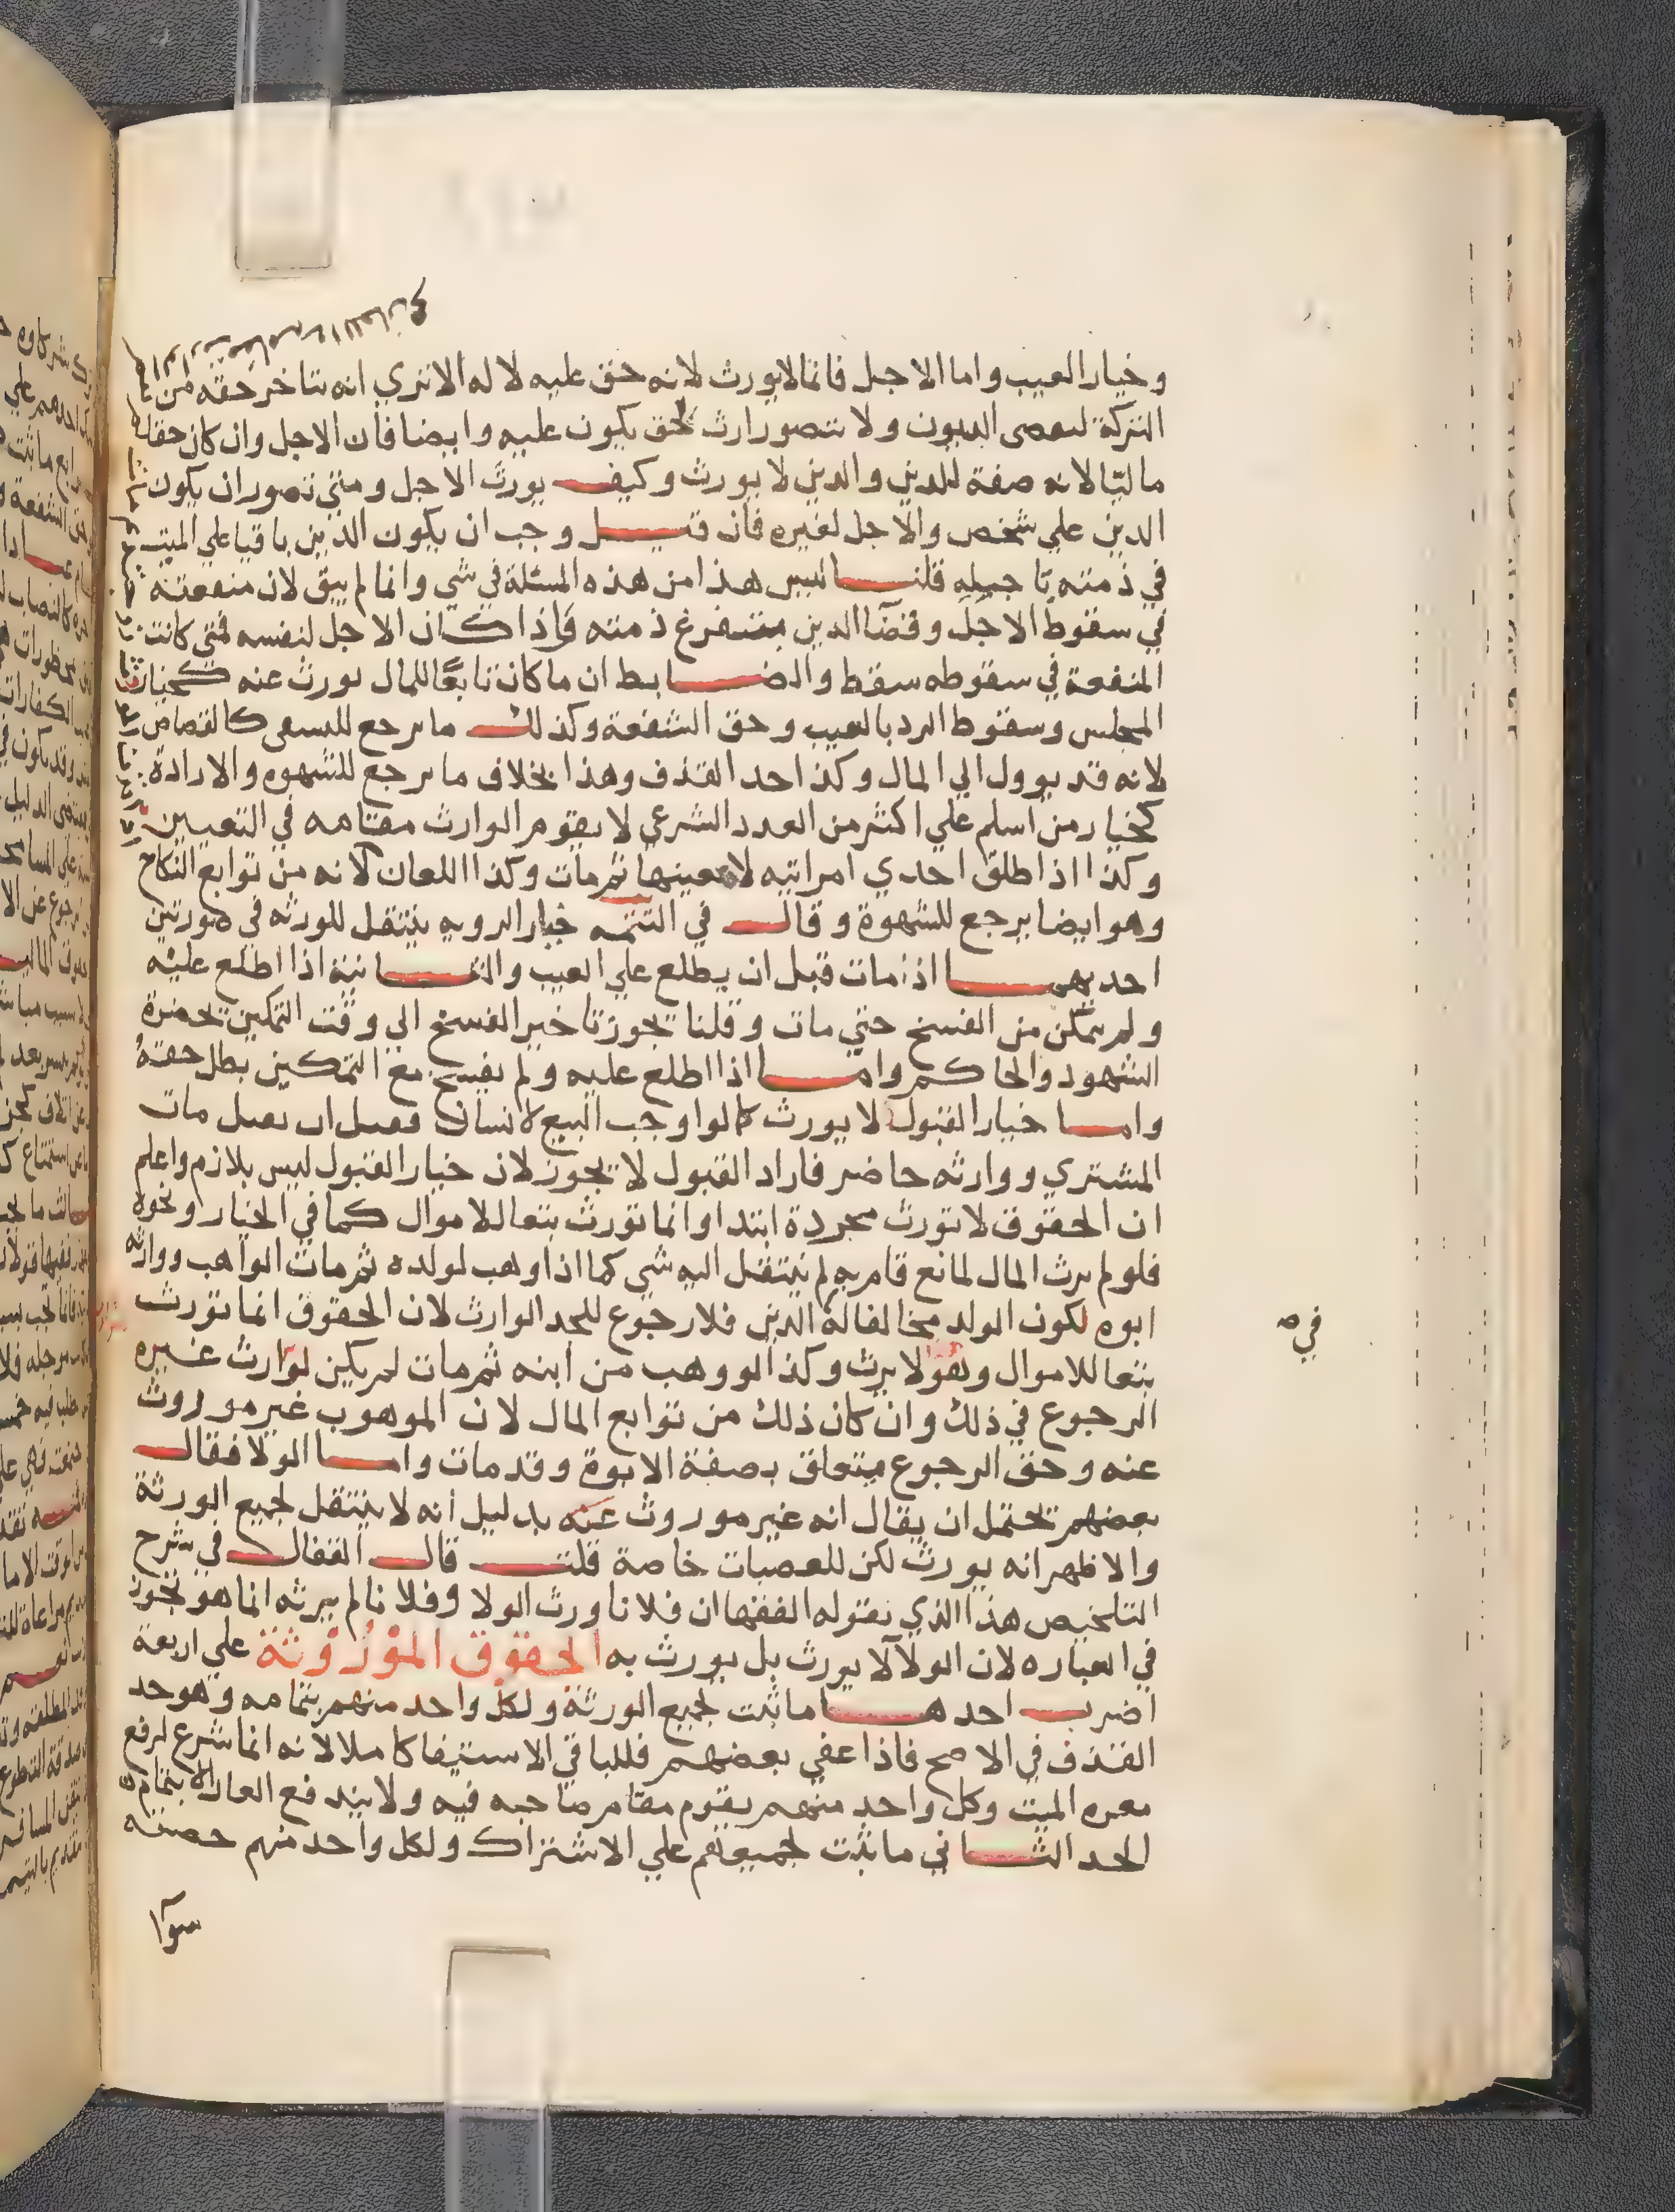 وخيار العيب واما الاجل فانما لا يورث لانه حق عليه لا له الا تري انه تتاخر حقه من
التركة لىعصى الديون ولا يتصور ارث لحق يكون عليه وايضا فان الاجل وان كان حقا
ماليا لانه صفة للدين والدين لا يورث وكيف يورث الاجل ومتي تصور ان يكون
الدين علي شخص والاجل لغيره فان قيل وجب ان يكون الدين باقيا علي الميت
في ذمته تاجيله قلنا ليس هذا من هذه المسئلة في شي وانما لم يبق لان منفعته
في سقوط الاجل وقضا الدين ذمته فاذا كان الاجل لنفسه فمتي كانت
المنفعة في سقوطه سقط والضابط ان ما كان تابعا للمال يورث عنه كخيار
المجلس وسقوط الرد بالعيب وحق الشفعة وكذلك ما يرجع للتشفي كالقصاص
لانه قد يوول الي المال وكذا حد القذف وهذا بخلاف ما يرجع للشهوه والارادة
كخيار من اسلم علي اكثر من العدد الشرعي لا يقوم الوارث مقامه في التعيين
وكذا اذا طلق احدي امراتيه لا بعينها ثم مات وكذا اللعان لانه من توابع النكاح
وهو ايضا يرجع للشهوة وقال في التتمه خيار الرويه ينتقل للورثه في صورتين
احديهما اذا مات قبل ان يطلع علي العيب والثانية اذا اطلع عليه
ولم يتمكن من الفسخ حتي مات وقلنا يجوز تاخير الفسخ الي وقت التمكين بحضرة
الشهود والحاكم واما اذا اطلع عليه ولم يفسخ مع التمكين بطل حقه
واما خيار القبول لا يورث كما لو اوجب البيع لانسان فقبل ان يقبل مات
المشتري ووارثه حاضر فاراد القبول لا يجوز لان خيار القبول ليس بلازم واعلم
ان الحقوق لا تورث مجردة ابتدا وانما تورث تبعا للاموال كما في الخيار ونحوه
فلو لم يرث المال لمانع قام به لم ينتقل اليه شي كما اذا وهب لولده ثم مات الواهب ووارثه
ابوه لكون الولد مخالفا له الدين فلا رجوع للجد الوارث لان الحقوق انما تورث
تبعا للاموال وهو لا يرث وكذا لو وهب من ابنه ثم مات لم يكن لوارث غيره
الرجوع في ذلك وان كان ذلك من توابع المال لان الموهوب غير موروث
عنه وحق الرجوع يتعلق بصفة الابوة وقد مات واما الولا فقال
بعضهم يحتمل ان يقال انه غير موروث عنه بدليل انه لا ينتقل لجميع الورثة
والاظهر انه يورث لكن للعصبات خاصة قلت قال القفال في شرح
التلخيص هذا الذي يقوله الفقها ان فلانا ورث الولا وفلانا لم يرثه انما هو تجوز
في العباره لان الولا لا يورث بل يورث به الحقوق الموروثة علي اربعة
اضرب احدها ما ثبت لجميع الورثة ولكل واحد منهم بتمامه وهو حد
القذف في الاصح فاذا عفي بعضهم فللباقي الاستيفا كاملا لانه انما شرع لرفع
معره الميت وكل واحد منهم يقوم مقام صاحبه فيه ولا يندفع العار الا بتمام
الحد الثاني ما ثبت لجميعهم علي الاشتراك ولكل واحد منهم حصته
سوا